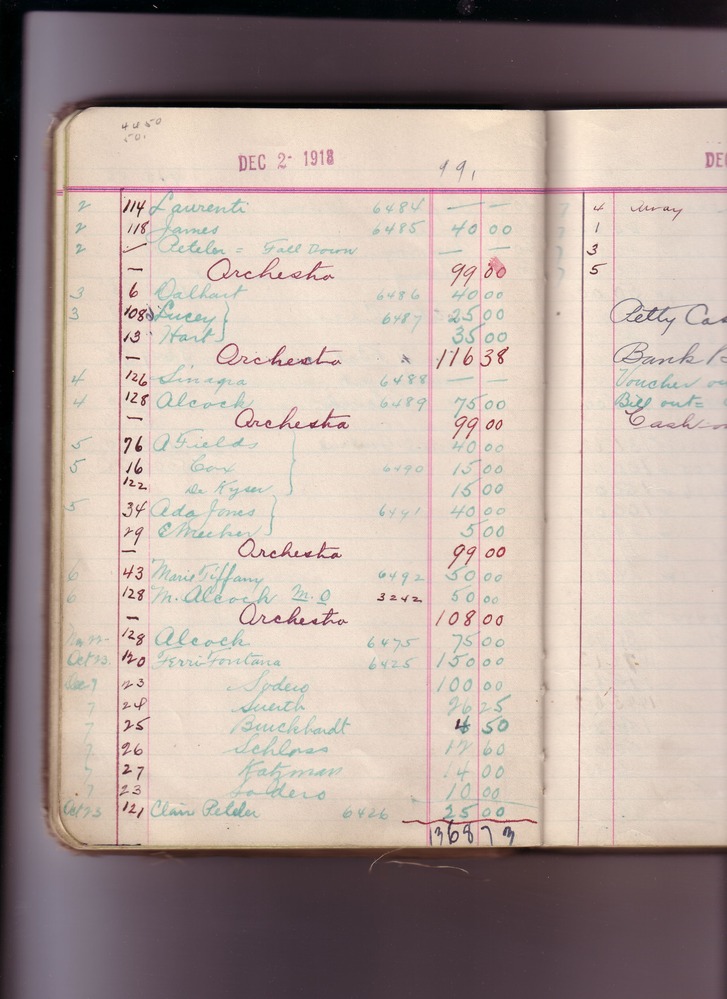 44 50
50.
DEC 2- 1918
99,
2 114 Laurenti 6484 — —
2 118 James 6485 40 00
2 — Peteler = Fall Down — —
— Orchestra 99 00
3 6 Dalhart 6486 40 00
3 108 Lucey 6487 25 00
13 Hart 35 00
— Orchestra 116 38
4 126 Sinagra 6488 — —
4 128 Alcock 6489 75 00
— Orchestra 99 00
5 76 A Fields 40 00
5 16 Cox 6490 15 00
122 De Kyser 15 00
5 34 Ada Jones 6491 40 00
29 5 00
— Orchestra 99 00
6 43 Marie Tiffany 6492 50 00
6 128 M. Alcock M.O 3242 50 00
— Orchestra 108 00
Nov 22 128 Alcock 6475 75 00
Oct 23. 120 Ferri Fontana 6425 150 00
Dec 7 23 Sodero 100 00
7 24 Suerth 26 25
7 25 Burckhardt 4 50
7 26 Schloss 12 60
7 27 Katzman 14 00
7 23 Sodero 10 00
Oct 23 121 Clair Peteler 6426 25 00
1368 73
DE
4
1
3
5
Petty Cas
Bank B
Voucher ou
Bill out =
Cash on